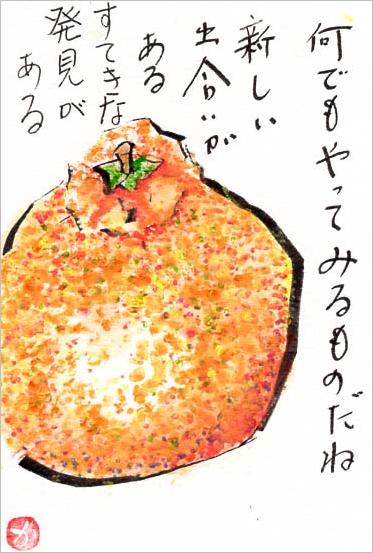 何でもやってみるものだね
新しい
出合いが
ある
すてきな
発見が
ある